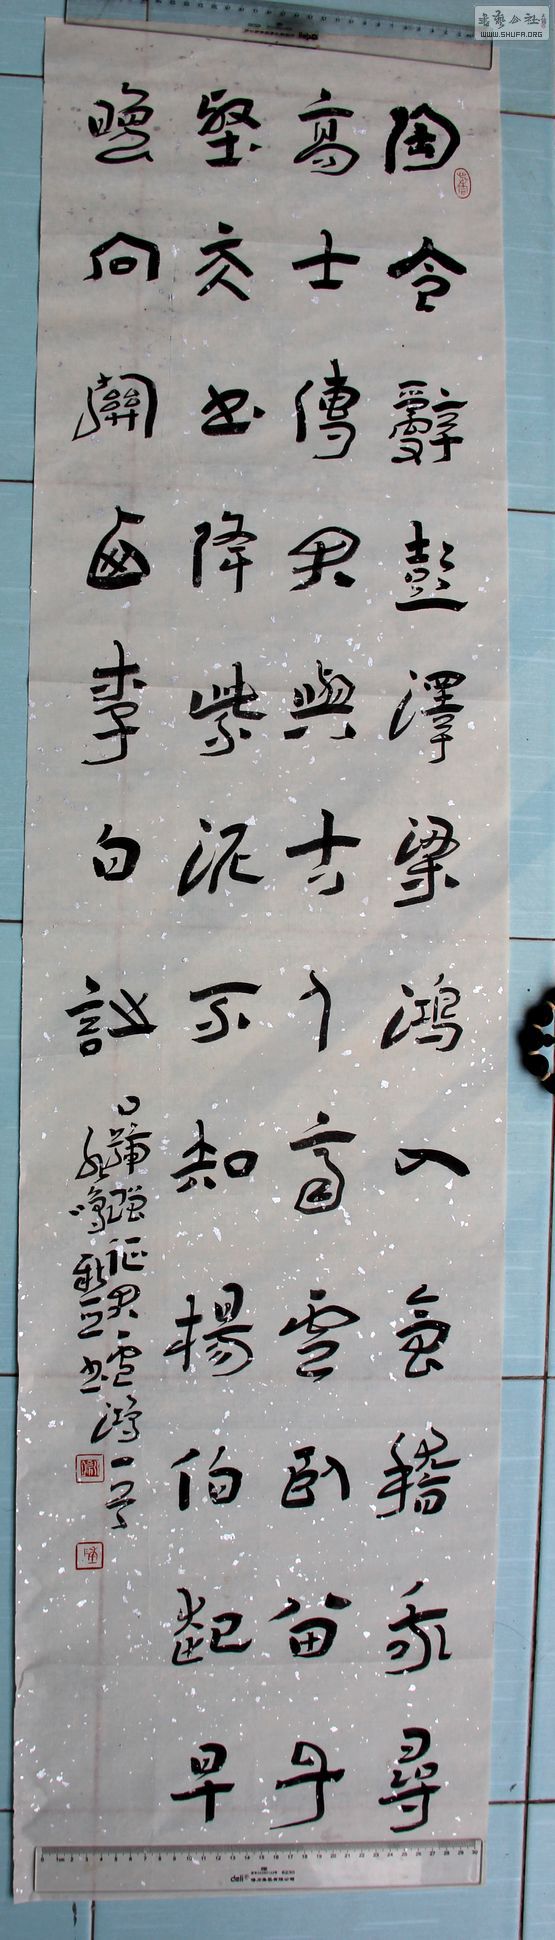 書藝公社
WWW.SHUFA.ORG
陶令辭彭澤梁鴻入會稽我尋
高士傳君與古人齊雲臥留丹
壑天書降紫泥不知楊伯起早
晚向關西李白詩
口號贈征君盧鴻一首
書
deli